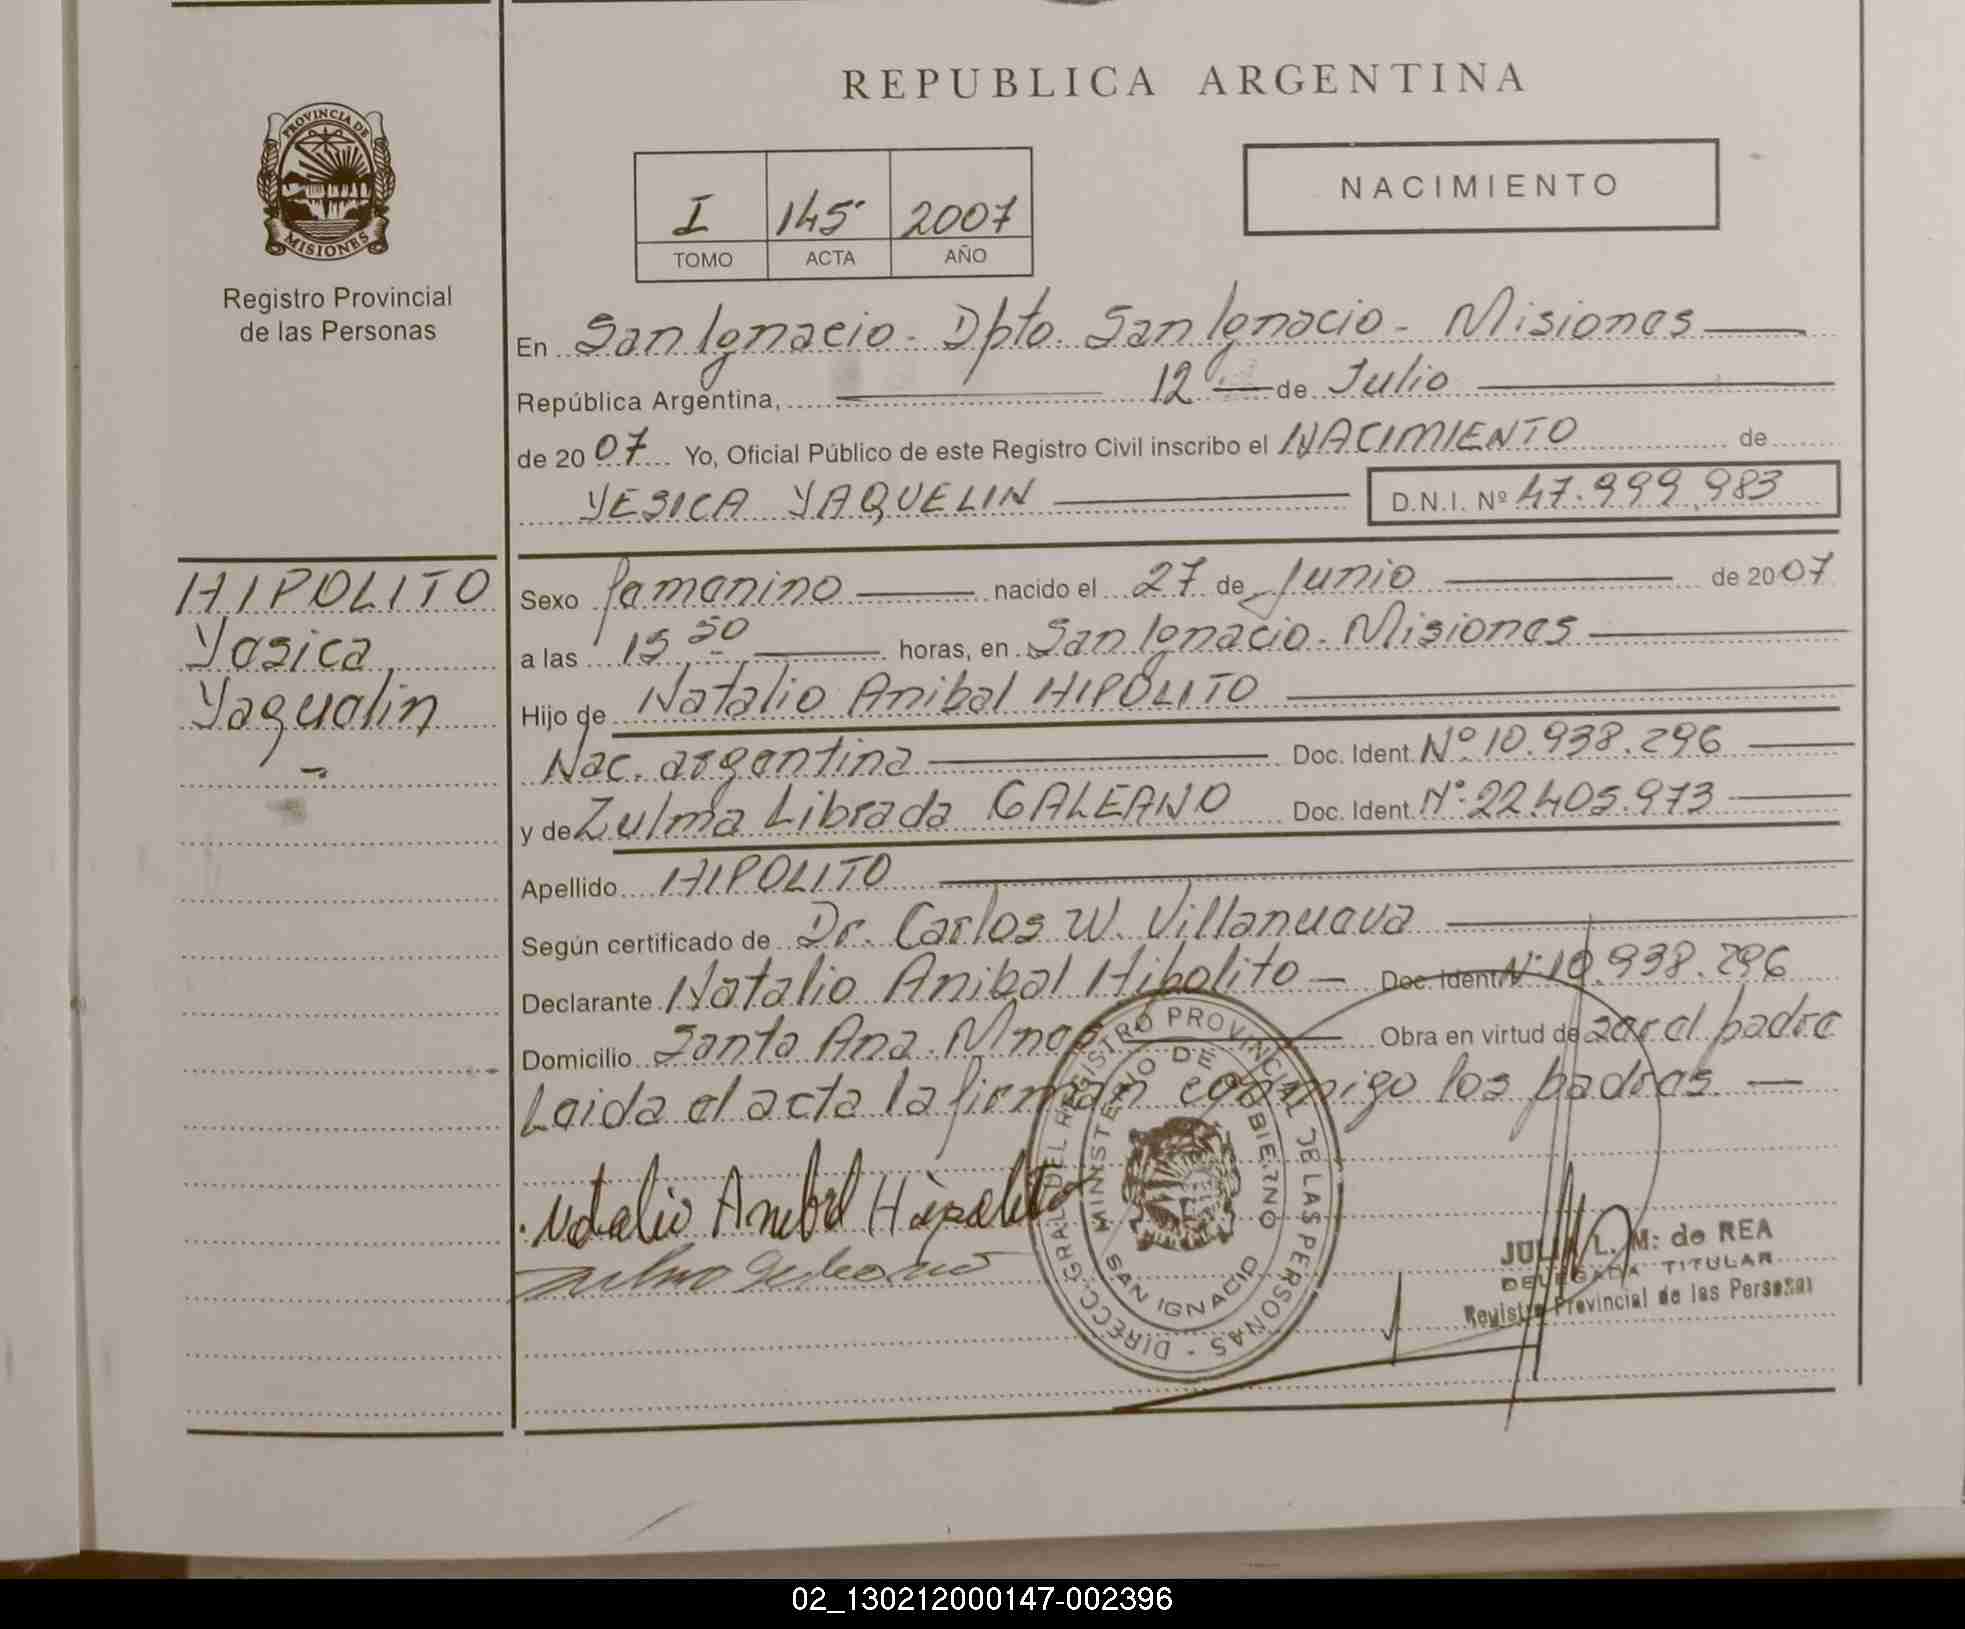 REPUBLICA ARGENTINA
PROVINCIA DE
MISIONES
Registro Provincial
de las Personas
I 145 2007
TOMO ACTA AÑO
NACIMIENTO
En San Ignacio - Dpto. San Ignacio - Misiones
República Argentina, 12 de Julio
de 2007 Yo, Oficial Público de este Registro Civil inscribo el NACIMIENTO de
YESICA YAQUELIN D.N.I. Nº 47.999.983
HIPOLITO
Yesica
Yaquelin
Sexo femenino nacido el 27 de Junio de 2007
a las 15 30 horas, en San Ignacio - Misiones
Hijo de Natalio Anibal HIPOLITO
Nac. argentina Doc. Ident. Nº 10.938.296
y de Zulma Librada GALEANO Doc. Ident. Nº 22.405.973
Apellido HIPOLITO
Según certificado de Dr. Carlos W. Villanueva
Declarante Natalio Anibal Hipolito - Doc. Ident. Nº 10.938.296
Domicilio Santa Ana. Mnes Obra en virtud de ser el padre
Leida el acta la firman conmigo los padres.
Natalio Anibal Hipolito
DIRECC. GRAL. DEL REGISTRO PROVINCIAL DE LAS PERSONAS -
MINISTERIO DE GOBIERNO
SAN IGNACIO
JULIA L. M: de REA
DELEGADA TITULAR
Registro Provincial de las Personas
02_130212000147-002396